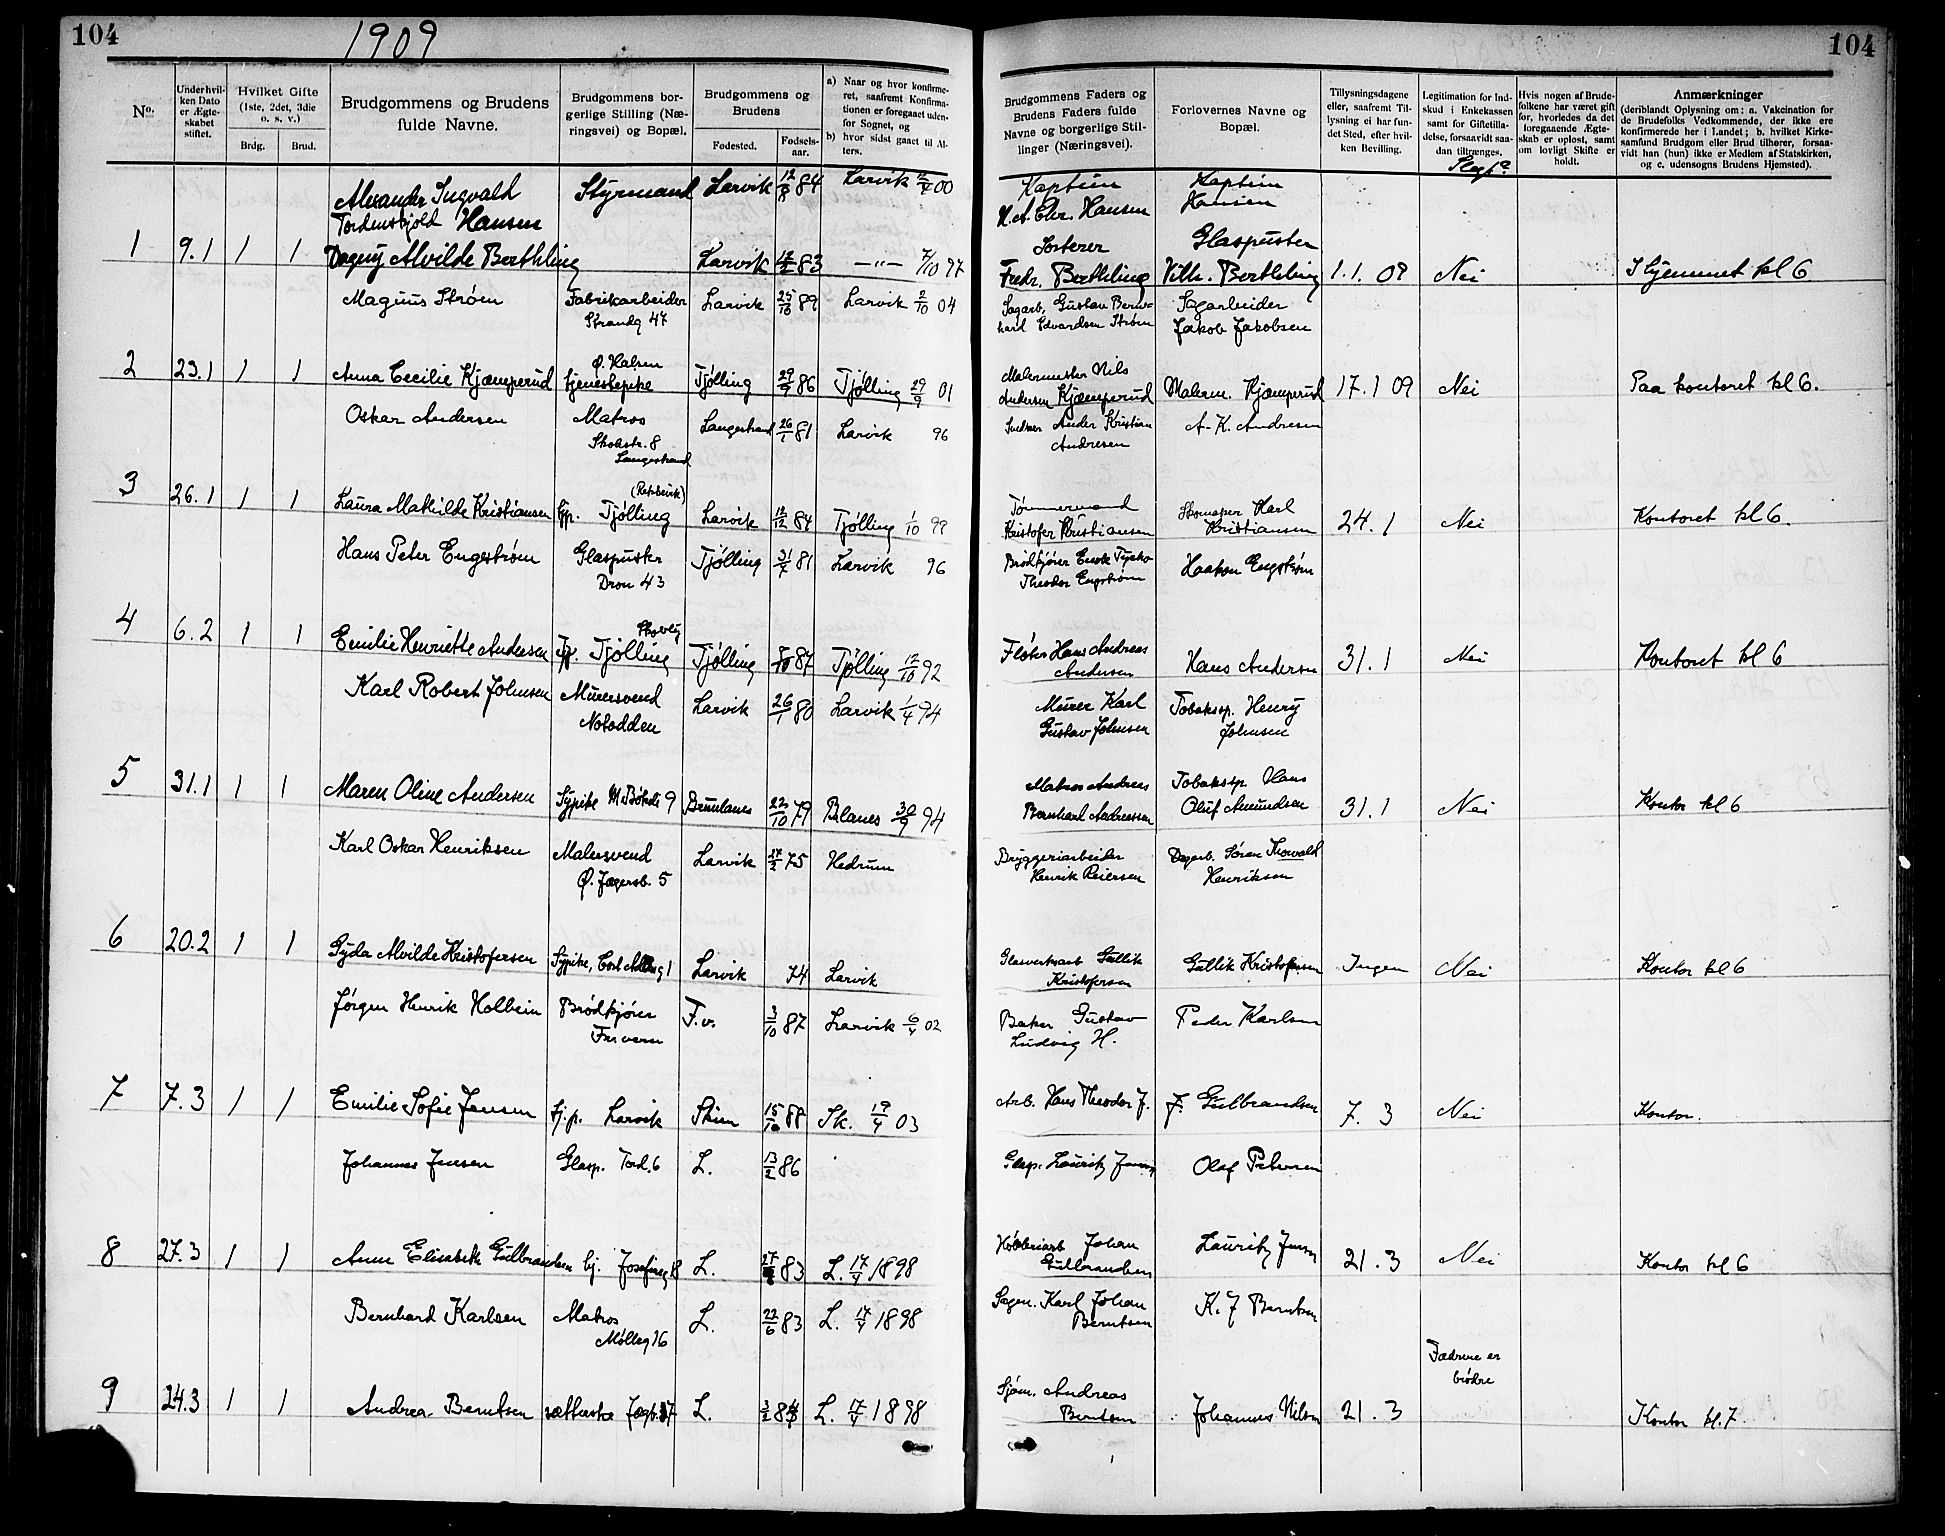 104
1909
104
No.
Under hvil-
ken Dato
er Ægte-
skabet
stiftet.
Hvilket Gifte
(1ste, 2det, 3die
o. s. v.)
Brdg.
Brud.
Brudgommens og Brudens
fulde Navne.
Brudgommens bor-
gerlige Stilling (Næ-
ringsvei) og Bopæl.
Brudgommens og
Brudens
Fødested.
Fødsels-
aar.
a) Naar og hvor konfirme-
ret, saafremt Konfirma-
tionen er foregaaet uden-
for Sognet, og
b) hvor sidst gaaet til Al-
ters.
Brudgommens Faders og
Brudens Faders fulde
Navne og borgerlige Stil-
linger (Næringsvei).
Forlovernes Navne og
Bopæl.
Tillysningsdagene
eller, saafremt Til-
lysning ei har fun-
det Sted, efter hvil-
ken Bevilling.
Legitimation for Ind-
skud i Enkekassen
samt for Giftetilla-
delse, forsaavidt saa-
dan tiltrænges.
Hvis nogen af Brude-
folkene har været gift
før, hvorledes da det
foregaaende Ægte-
skab er opløst, samt
om lovligt Skifte er
holdt.
Anmærkninger
(deriblandt Oplysning om: a. Vakcination for
de Brudefolks Vedkommende, der ikke ere
konfirmerede her i Landet; b. hvilket Kirke-
samfund Brudgom eller Brud tilhører, forsaa-
vidt han (hun) ikke er Medlem af Statskirken,
og c. udensogns Brudens Hjemsted).
Alexander Ingvald Styrmand Larvik 84 Larvik 00 Kaptein Kaptein
Tordenskjold Hansen Chr. Hansen Hansen
Sorterer Glaspuster
1 9.1 1 1 Dagny Alvilde Berthling Larvik 83 —"— 7/10 97 Fredr. Berthling Vilh. Berthling 1.1.09 Nei I hjemmet kl 6.
Magnus Strøm Fabrikarbeider Larvik 25/10 89 Larvik 2/10 04 Sagarb. Gustav Bern- Sagarbeider
Strandg 47 hard Edvardsen Strøm Jakob Jakobsen
2 23.1 1 1 Anna Cecilie Kjæmperud Ø. Halsen Tjølling 29/9 86 Tjølling 29/9 01 Malermester Nils Malerm. Kjæmperud 17.1 09 Nei Paa kontoret kl 6.
tjenestepike Andersen Kjæmperud
Oskar Andersen Matros Langestrand 26/1 81 Larvik 96 Ander Kristian A. K. Andresen
8 Andresen
Langestrand
3 26.1 1 1 Laura Mathilde Kristiansen tjp. Tjølling Larvik 84 Tjølling 1/10 99 Tømmermand Skomager Karl 24.1 Nei Kontoret kl 6.
Kristofer Kristiansen Kristiansen
Hans Peter Engestrøm Glaspuster Tjølling 81 Larvik 96 Brødkjører Haakon Engstrøm
Dron 43 Theodor Engstrøm
4 6.2 1 1 Emilie Henriette Andersen Tjp. Tjølling Tjølling 87 Tjølling 92 Fløter Hans Andreas Hans Andersen 31.1 Nei Kontoret kl 6
Andersen
Karl Robert Johnsen Murersvend Larvik 26/1 80 Larvik 1/4 94 Murer Karl Tobakssp. Henry
Notodden Gustav Johnsen Johnsen
5 31.1 1 1 Maren Oline Andersen Sypike 9 Brunlanes 79 Blanes 30/9 94 Matros Andreas Tobakssp. Hans 31.1 Nei Kontor kl 6
Bernhard Andreassen Oluf Amundsen
Karl Oskar Henriksen Malersvend Larvik 75 Hedrum Bryggeriarbeider Dagarb. Søren Thorvald
Ø. Jegersb. 5 Henrik Reiersen Henriksen
6 20.2 1 1 Gyda Alvilde Kristofersen Sypike, 1 Larvik 74 Larvik Glasverksarb Gullik Gullik Kristofersen Ingen Nei Kontor kl 6
Kristofersen
Jørgen Henrik Holbein Brødkjører F.v. 3/10 87 Larvik 6/4 02 Baker Gustav Peder Karlsen
Ludvig H.
7 7.3 1 1 Emilie Sofie Jensen tj.p. Larvik Skien 15/10 88 Sk. 19/4 03 Arb. Hans Theodor J. J. Gulbrandsen 7.3 Nei Kontor.
Johannes Jensen Glasp. Tord. 6 L. 13/2 86 Glasp. Lauritz Jensen Olaf Petersen
8 27.3 1 1 Anne Elisabeth Gulbrandsen tj. L. 83 L. 17/4 1898 Høvleriarb Johan Lauritz Jensen 21.3 Nei Kontor kl 6
Gulbrandsen
Bernhard Karlsen Matros L. 23/6 83 L. 17/4 1898 Sagm. Karl Johan K. J Berntsen
Mølleg 16 Berntsen
Fædrene er
brødre
9 24.3 1 1 Andrea Berntsen L. 3/2 L. 17/4 1898 Sjøm. Andreas Johannes Nilsen 21.3 Kontor kl. 7
Berntsen